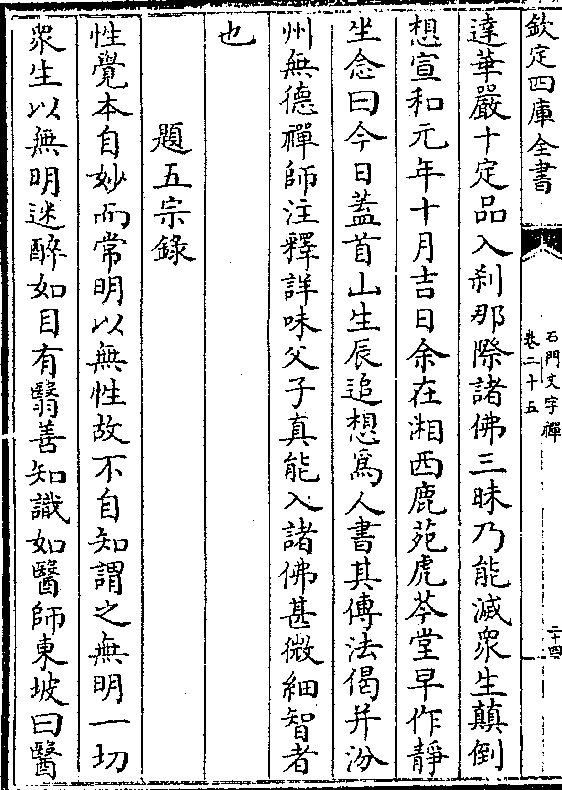 欽定四庫全書
石門文字禪
卷二十五
二十四
達華嚴十定品入刹那際諸佛三昧乃能滅衆生顛倒
想宣和元年十月吉日余在湘西鹿苑虎芩堂早作靜
坐念曰今日蓋首山生辰追想爲人書其傳法偈并汾
州無德禪師注釋詳味父子真能入諸佛甚微細智者
也
題五宗錄
性覺本自妙而常明以無性故不自知謂之無明一切
衆生以無明迷醉如目有翳善知識如醫師東坡曰醫